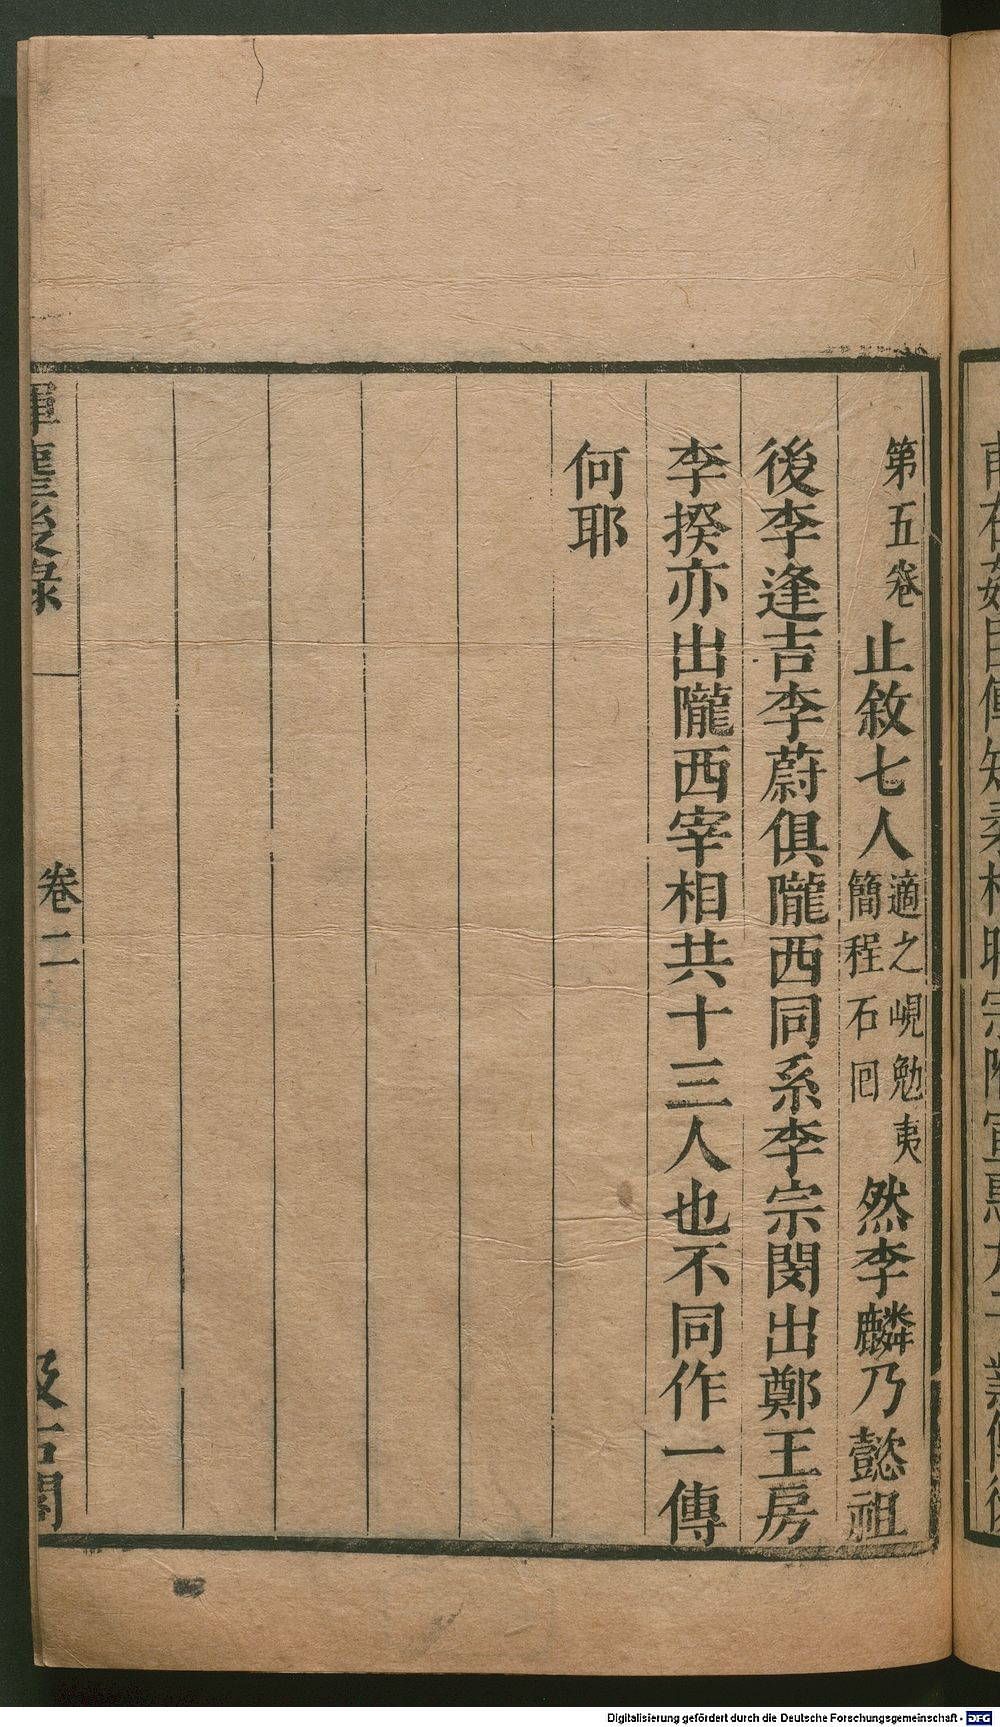 第五卷止敘七人適之峴勉夷簡程石回然李麟乃懿祖
後李逢吉李蔚俱隴西同系李宗閔出鄭王房
李揆亦出隴西宰相共十三人也不同作一傳
何耶
揮麈後錄
卷二
汲古閣
Digitalisierung gefördert durch die Deutsche Forschungsgemeinschaft - DFG